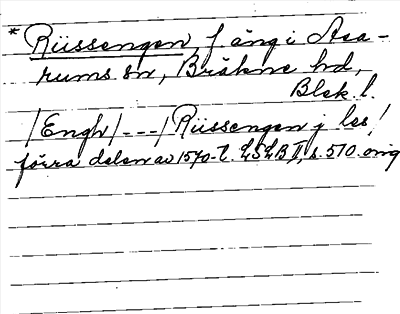 * Rüssengen, f äng i Asa-
rums sn, Bräkne hd,
Blek. l.
/Engh/ --- / Rüssengen j les /
förra delen av 1570-t. LSLB II, s. 510. orig